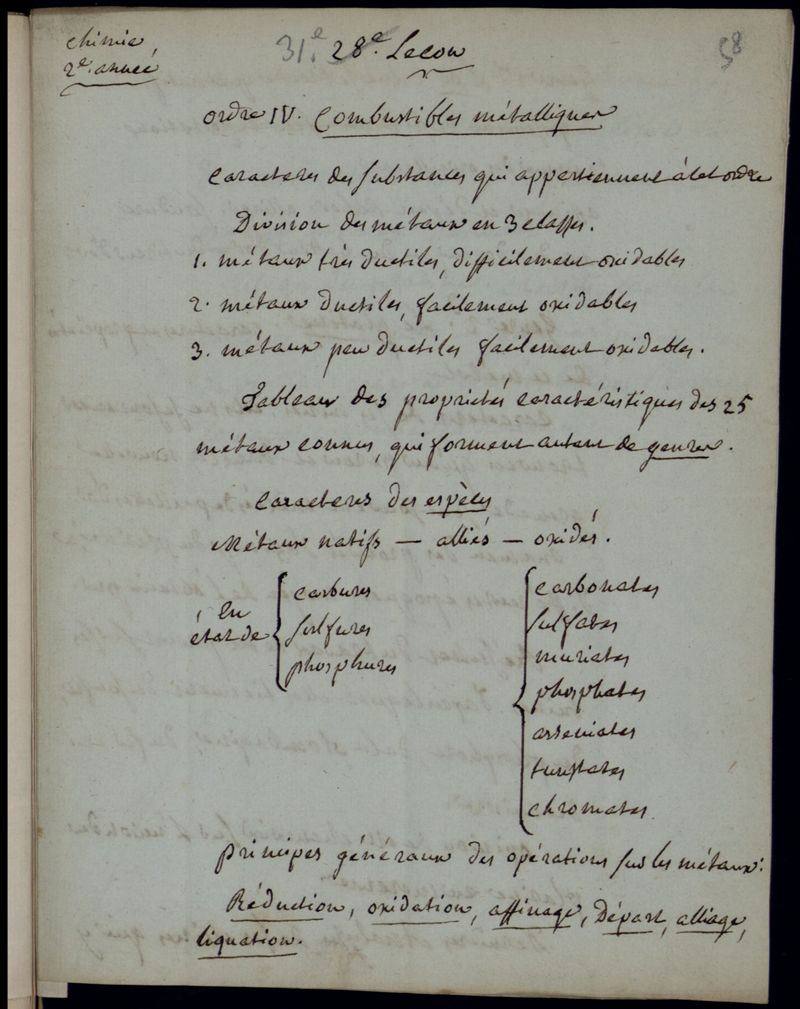 chimie
2e. année
31.e 28e. Lecon
58
ordre IV. Combustibles métalliques
Caracteres des substances qui appartiennent à cet ordre
Division des métaux en 3 classes.
1. métaux très ductiles, difficilement oxidables
2. métaux ductiles, facilement oxidables
3. métaux peu ductiles facilement oxidables.
Tableau des proprietés caractéristiques des 25
métaux connus, qui forment autant de genres.
Caracteres des espèces
Métaux natifs — alliés — oxidés.
En
état de
carbures
sulfures
phosphures
carbonates
sulfates
muriates
phosphates
arseniates
tunstates
chromates
principes généraux des opérations sur les métaux:
Réduction, oxidation, affinage, Départ, alliage,
liquation.